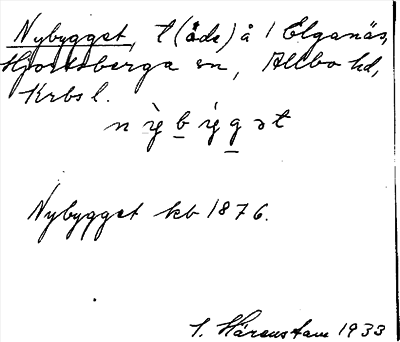 Nybygget, t(äde) å 1 Elganäs,
Hjortsberga sn, Allbo hd,
Krbs l.
n ỳ b y̍ g ə t
Nybygget kb 1876.
I. Hårenstam 1933